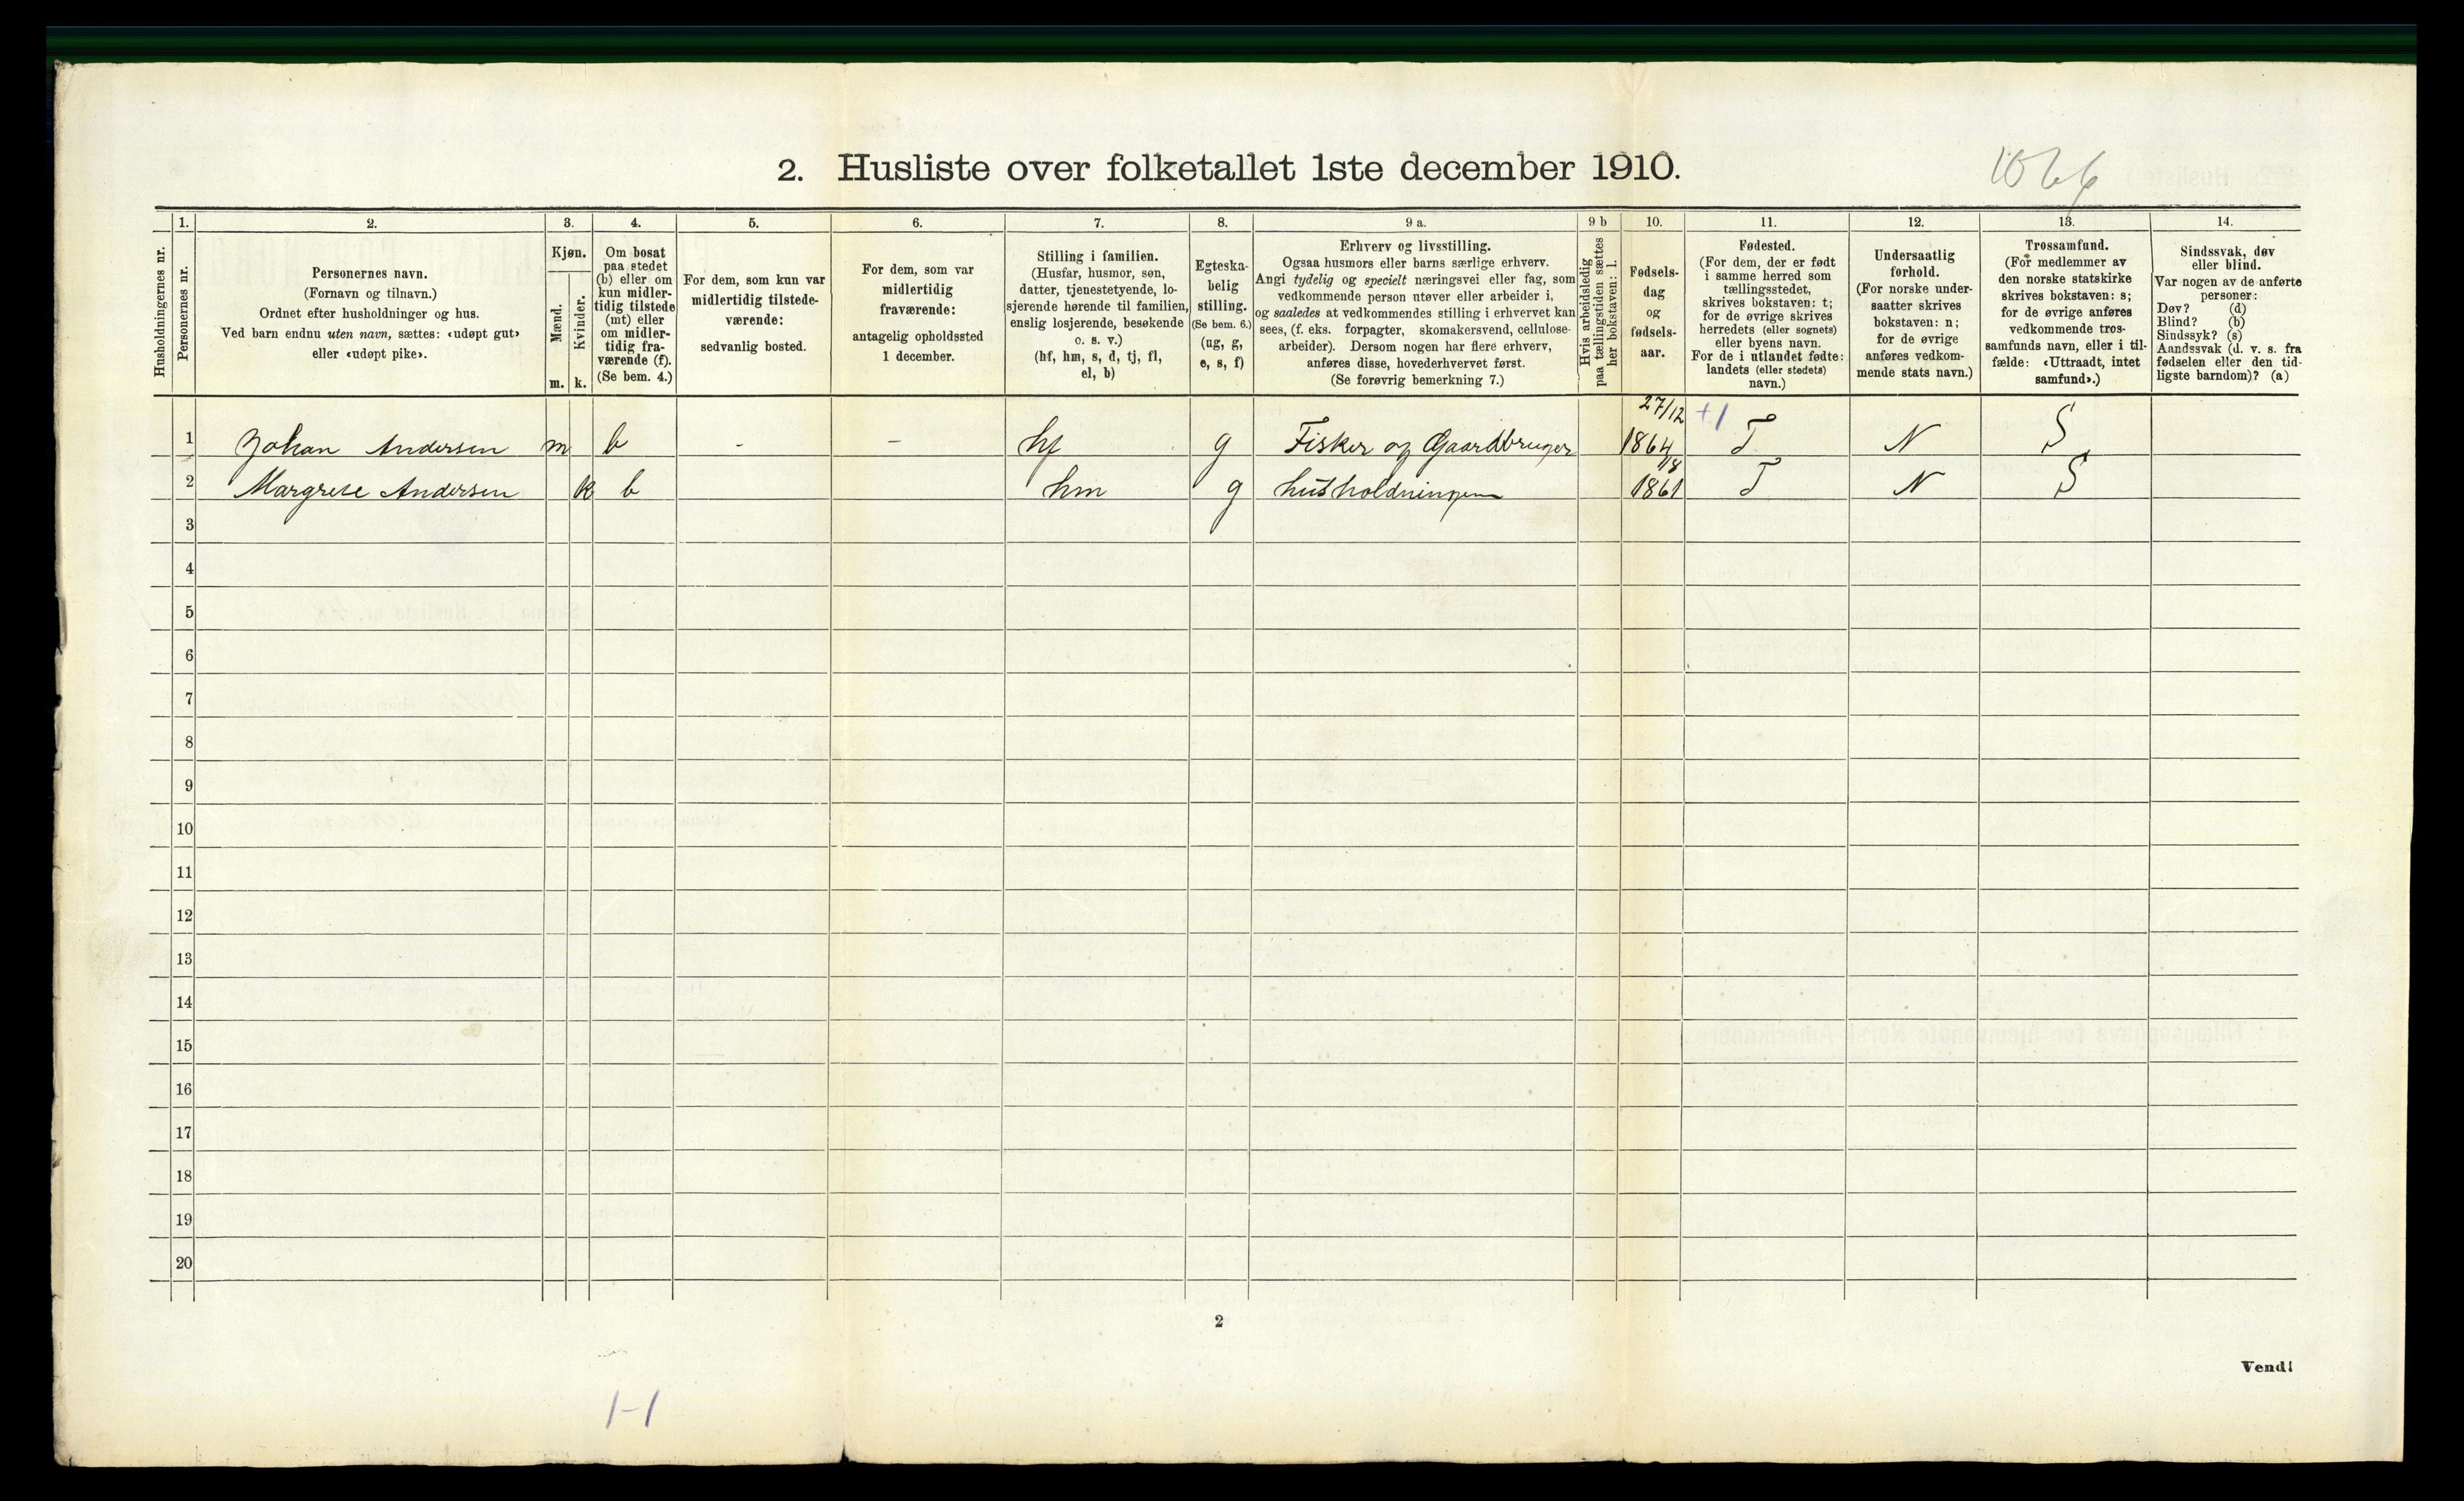 2. Husliste over folketallet 1ste december 1910.
1066
1.
2.
3.
4.
5.
6.
7.
8.
9 a.
9 b
10.
11.
12.
13.
14.
Husholdningernes nr.
Personernes nr.
Personernes navn.
(Fornavn og tilnavn.)
Ordnet efter husholdninger og hus.
Ved barn endnu uten navn, sættes: «udøpt gut»
eller «udøpt pike».
Kjøn.
Mænd.
m.
Kvinder.
k.
Om bosat
paa stedet
(b) eller om
kun midler-
tidig tilstede
(mt) eller
om midler-
tidig fra-
værende (f).
(Se bem. 4.)
For dem, som kun var
midlertidig tilstede-
værende:
sedvanlig bosted.
For dem, som var
midlertidig
fraværende:
antagelig opholdssted
1 december.
Stilling i familien.
(Husfar, husmor, søn,
datter, tjenestetyende, lo-
sjerende hørende til familien,
enslig losjerende, besøkende
o. s. v.)
(hf, hm, s, d, tj, fl,
el, b)
Egteska-
belig
stilling.
(Se bem. 6.)
(ug, g,
e, s, f)
Erhverv og livsstilling.
Ogsaa husmors eller barns særlige erhverv.
Angi tydelig og specielt næringsvei eller fag, som
vedkommende person utøver eller arbeider i,
og saaledes at vedkommendes stilling i erhvervet kan
sees, (f. eks. forpagter, skomakersvend, cellulose-
arbeider). Dersom nogen har flere erhverv,
anføres disse, hovederhvervet først.
(Se forøvrig bemerkning 7.)
Hvis arbeidsledig
paa tællingstiden sættes
her bokstaven: l.
Fødsels-
dag
og
fødsels-
aar.
Fødested.
(For dem, der er født
i samme herred som
tællingsstedet,
skrives bokstaven: t;
for de øvrige skrives
herredets (eller sognets)
eller byens navn.
For de i utlandet fødte:
landets (eller stedets)
navn.)
Undersaatlig
forhold.
(For norske under-
saatter skrives
bokstaven: n;
for de øvrige
anføres vedkom-
mende stats navn.)
Trossamfund.
(For medlemmer av
den norske statskirke
skrives bokstaven: s;
for de øvrige anføres
vedkommende tros-
samfunds navn, eller i til-
fælde: «Uttraadt, intet
samfund».)
Sindssvak, døv
eller blind.
Var nogen av de anførte
personer:
Døv? (d)
Blind? (b)
Sindssyk? (s)
Aandssvak (d. v. s. fra
fødselen eller den tid-
ligste barndom)? (a)
1 Johan Andersen m b - - hf g Fisker og Gaardbruger 27/12 1864 +1 T N S
2 Margrete Andersen k b hm g husholdningen 1/8 1861 T N S
3
4
5
6
7
8
9
10
11
12
13
14
15
16
17
18
19
20
2
Vend!
1-1